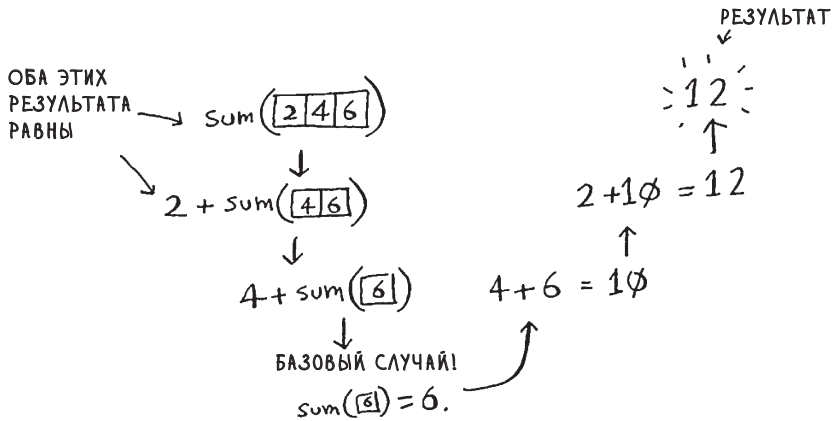 РЕЗУЛЬТАТ
12
ОБА ЭТИХ
РЕЗУЛЬТАТА
РАВНЫ
sum([2|4|6])
2 + sum([4|6])
4 + sum([6])
БАЗОВЫЙ СЛУЧАЙ!
sum([6]) = 6.
4 + 6 = 10
2 + 10 = 12